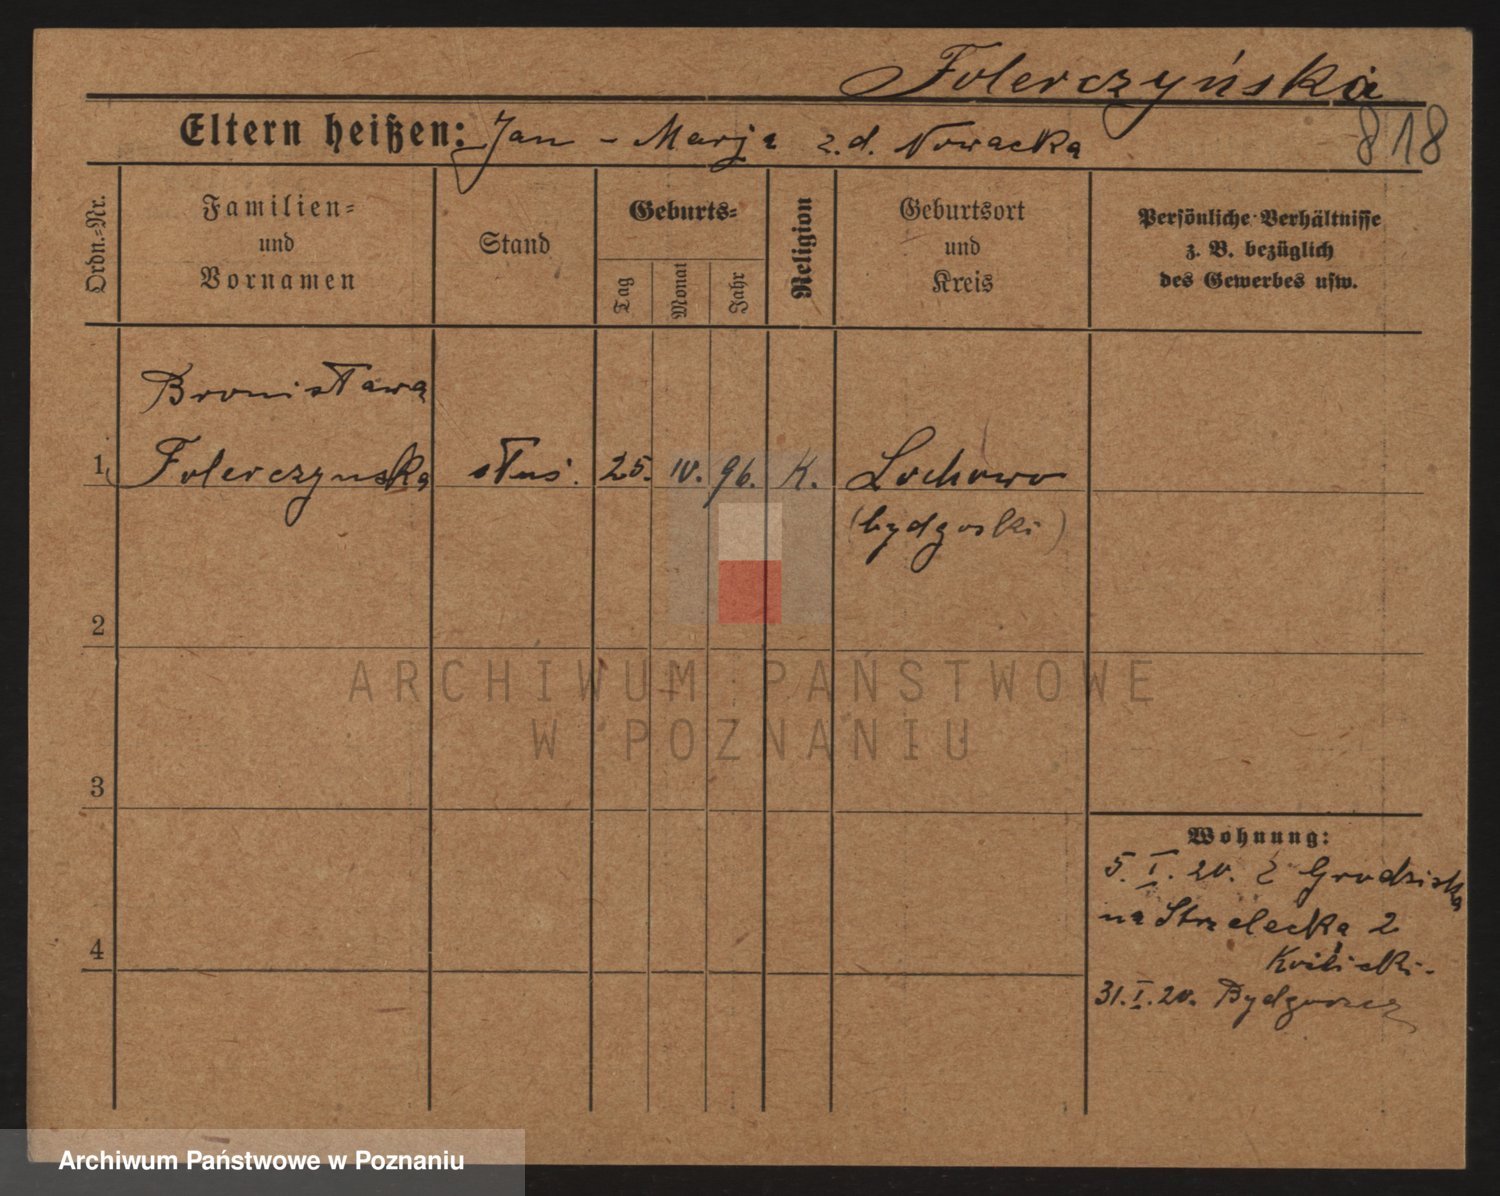 Folerczyńska
818
Eltern heißen: Jan - Marja z.d. Nowacka
Ordn.-Nr.
Familien-
und
Vornamen
Stand
Geburts-
Tag
Monat
Jahr
Religion
Geburtsort
und
Kreis
Persönliche Verhältnisse
z. B. bezüglich
des Gewerbes usw.
Bronisława
1 Folerczynska słuś. 25. IV. 96. K. Lochowo
(bydgoski)
2
3
4
Wohnung:
5. I. 20. z Grodziska
na Strzelecka 2
31. I. 20. Bydgoszcz
ARCHIWUM PAŃSTWOWE
W POZNANIU
Archiwum Państwowe w Poznaniu